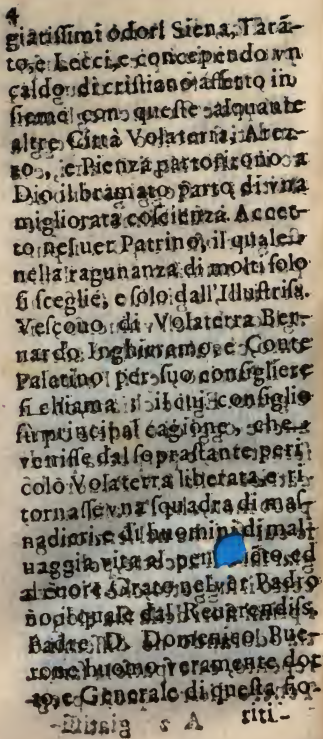 4
giatissimi odori Siena, Tarā-
to, e Lecci, e concependo vn
caldo di cristiano affetto in
sieme con queste alquante
altre Città Volaterra, Arez-
zo, e Pienza partorirono a
Dio il bramato parto di vna
migliorata coscienza. Accet-
to ne fu per Patrino, il quale
nella ragunanza di molti solo
si sceglie, e solo dall'Illustriss.
Vescouo di Volaterra Ber-
nardo Inghiramo, e Conte
Palatino per suo consigliere
si chiama il cui consiglio
fu principal cagione, che
venisse dal soprastante peri
colo Volaterra liberata, e ri
tornasse vna squadra di mas-
nadieri, e di huomini di mal
uaggia vita al ed
Padre
dal Reuerendiss.
Padre D. Domenico Bue-
rone huomo veramente dot
to, e Generale di questa fio-
A 2 riti-